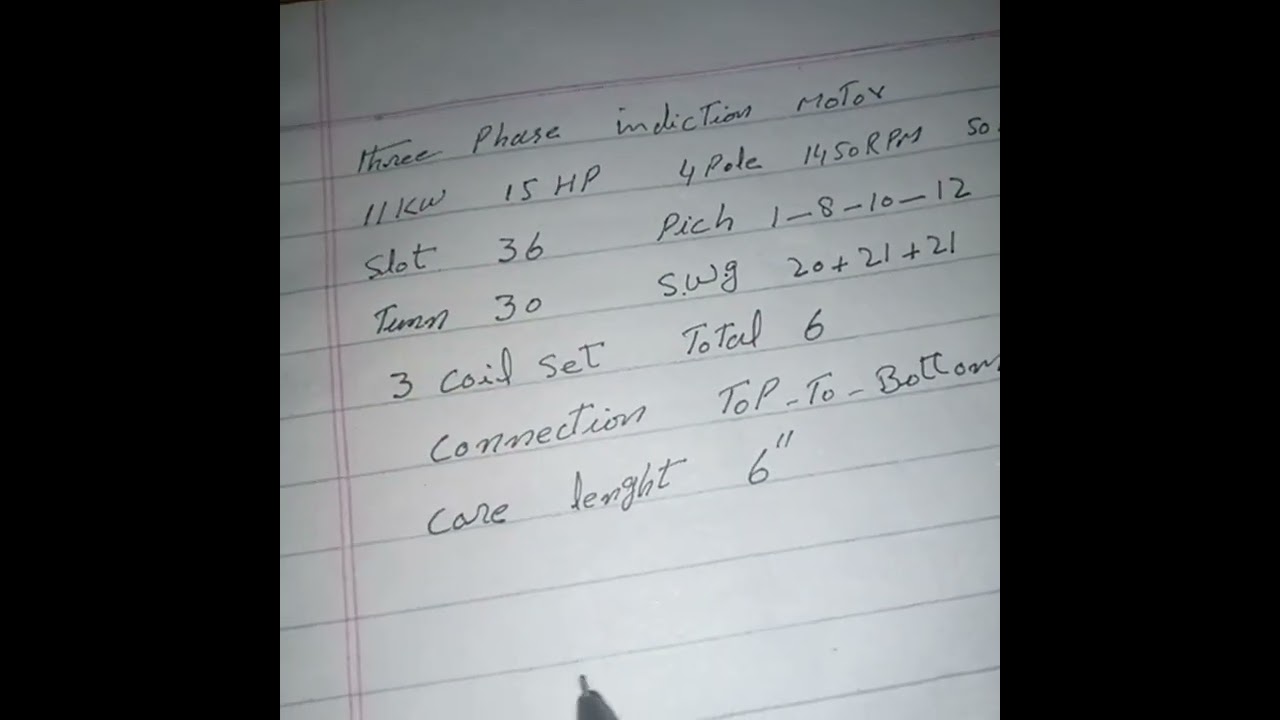 three Phase indiction Motor
11KW 15 HP 4 Pole 1450RPM 50
Slot 36 Pich 1-8-10-12
Turn 30 S.W.g 20+21+21
3 Coil Set Total 6
Connection Top-To-Bottom
Core lenght 6"